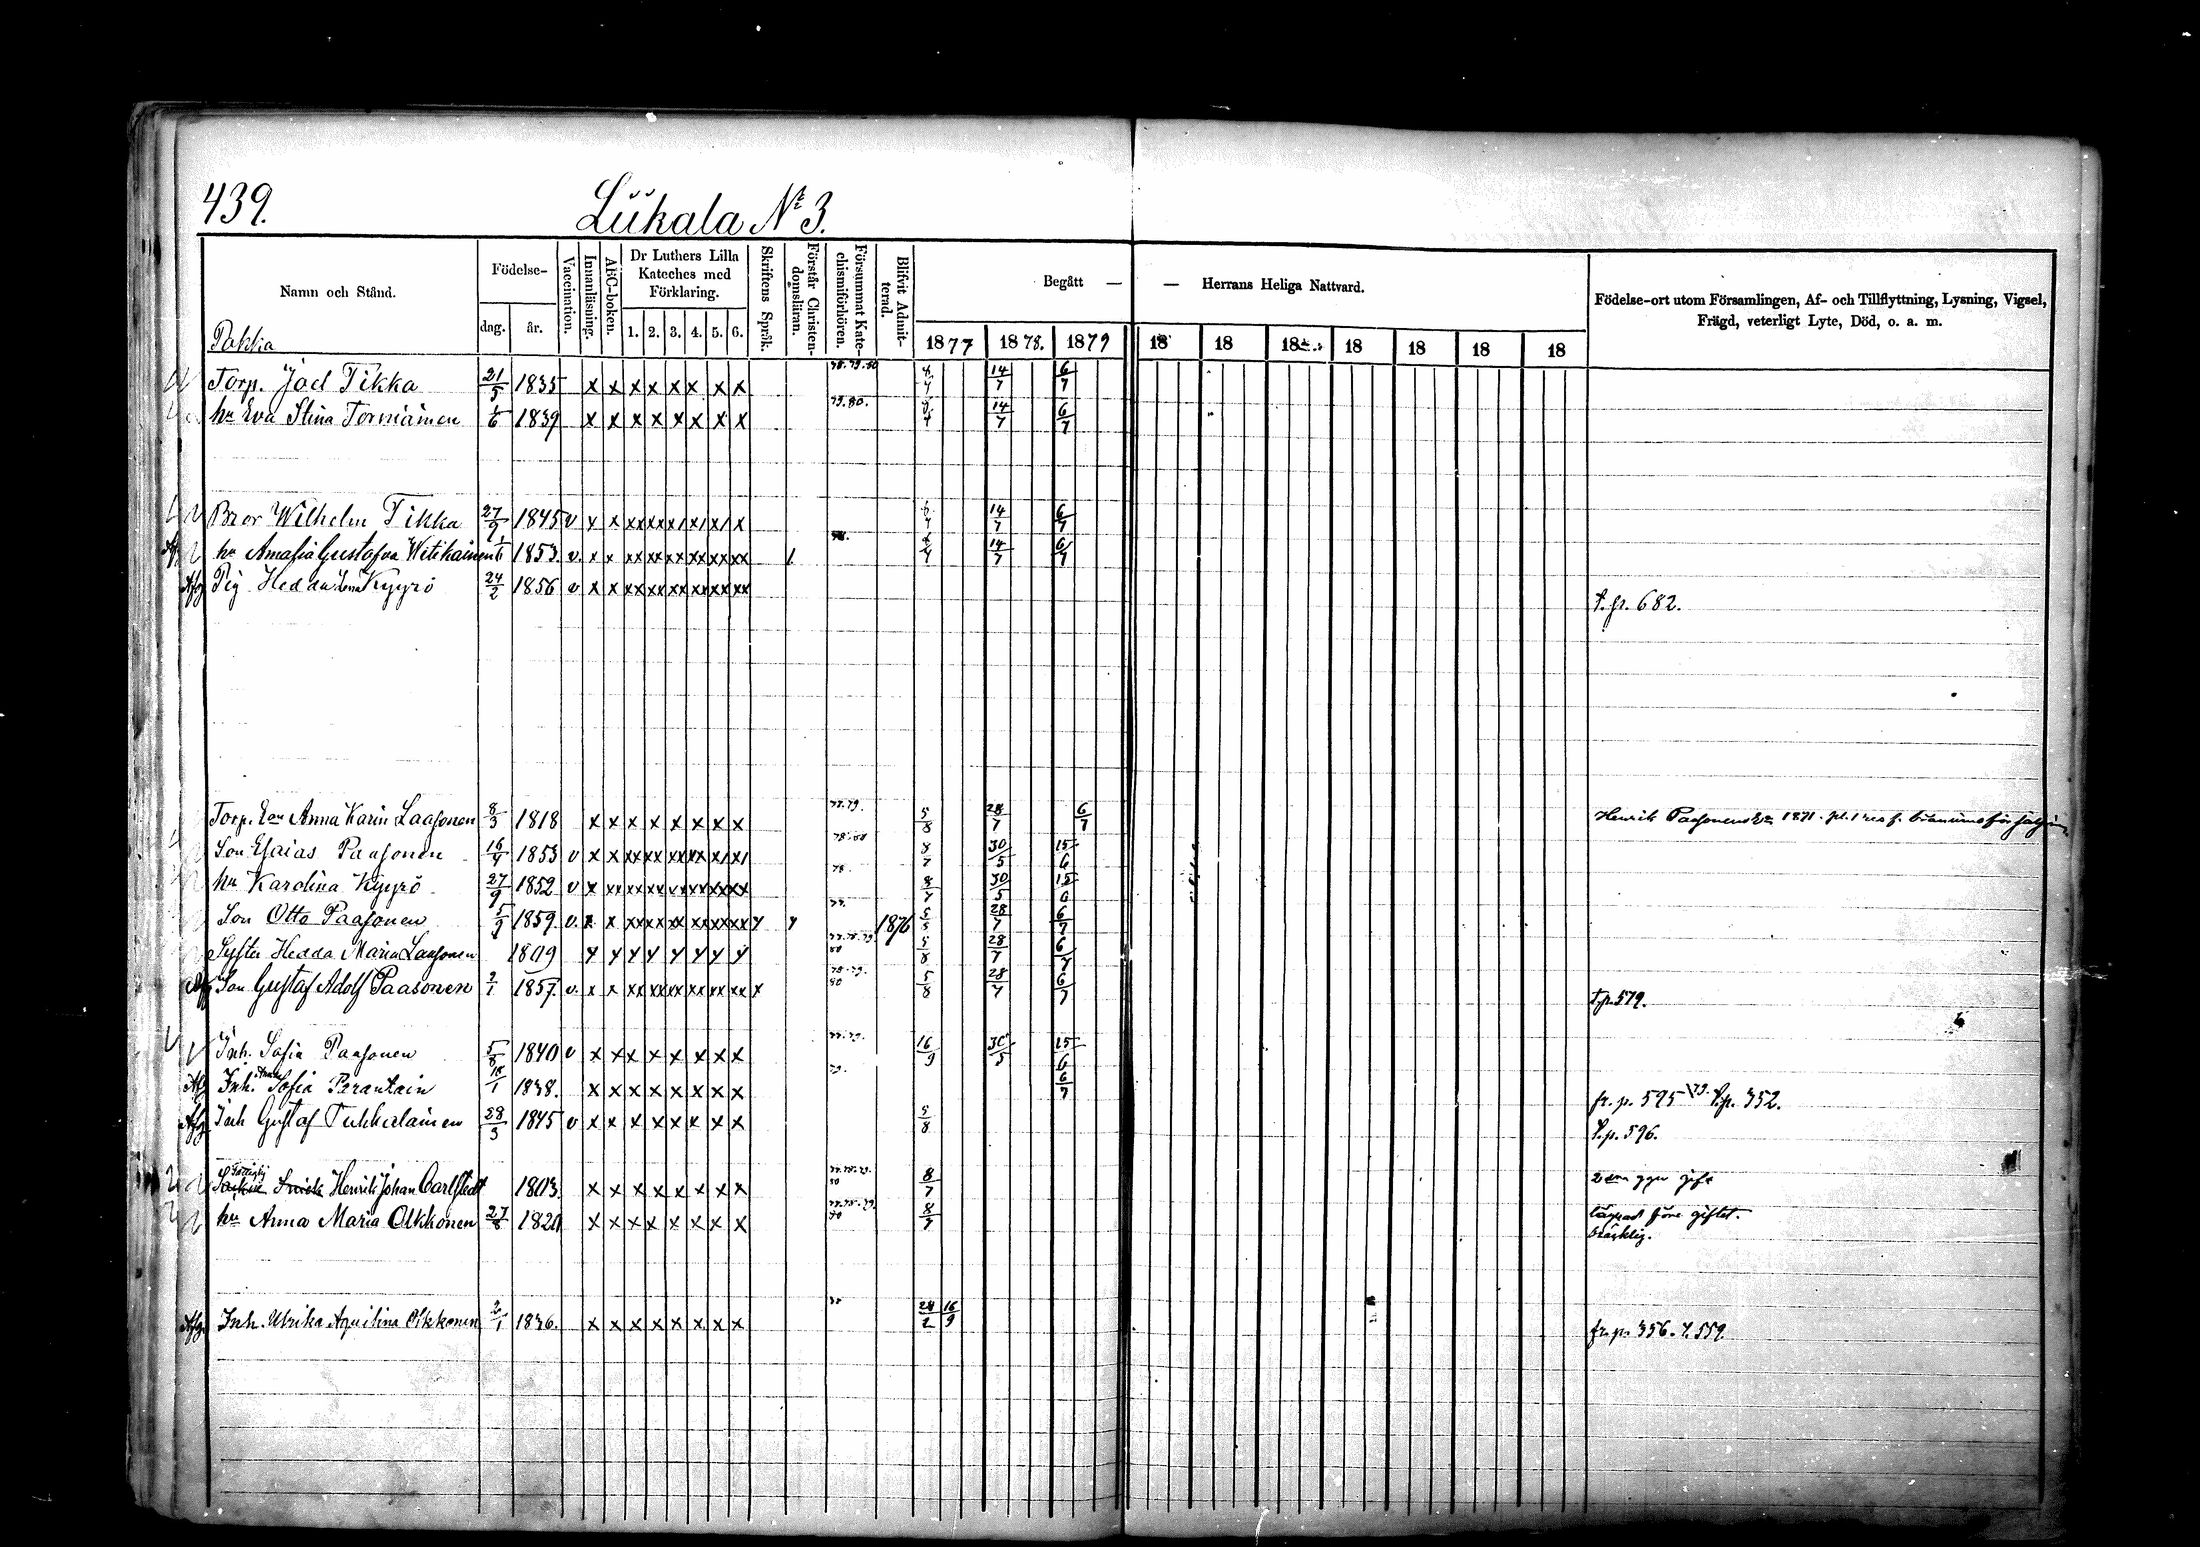 439.
Liikala No 3.
Namn och Stånd.
Födelse-
dng.
år.
Vaccination.
Innanläsning.
ABC-boken.
Dr Luthers Lilla
Kateches med
Förklaring.
1. 2. 3. 4. 5. 6.
Skriftens Språk.
Förstår Christen-
domsläran.
Försummat Kate-
chismiförhören.
Blifvit Admit-
terad.
Begått —
— Herrans Heliga Nattvard.
1877 1878. 1879 18 18 18 18 18 18 18
Födelse-ort utom Församlingen, Af- och Tillflyttning, Lysning, Vigsel,
Frägd, veterligt Lyte, Död, o. a. m.
Pakka
Torp. Joel Tikka 21/5 1835 x x x x x x x x 78.79.80 14/7 6/7
hu Eva Stina Torniainen 1839 x x x x x x x x 79.80. 14/7 6/7
Bror Wilhelm Tikka 27/9 1845 v x x xx xx x/ x/ x/ x 14/7 6/7
hu Amalia Gustafva Witikainen 1853. v. x x xx xx xx xx xx xx 1. 14/7 6/7
Afg Pig Hedda Lena Kyyrö 24/2 1856 v x x xx xx xx xx xx xx
t. p. 682.
Torp. Ea Anna Karin Laasonen 8/3 1818 x x x x x x x x 77.79. 5/8 28/7 6/7 Henrik Paasonens Ea 1871.
Son Esaias Paasonen 16/4 1853 v x x xx xx xx xx x/ x/ 8/7 30/5 15/6
hu Karolina Kyyrö 27/9 1852 v x xx xx xx xx xx xx 78. 8/7 30/5 15/6
Son Otto Paasonen 5/9 1859. v. x x xx xx xx xx xx xx y y 77. 1876 28/7 6/7
Syster Hedda Maria Laasonen 1809 y y y y y y y y 77.78.79 80 5/8 28/7 6/7
Afg Son Gustaf Adolf Paasonen 2/1 1857. v. x x xx xx xx xx xx xx x 78.79. 80 5/8 28/7 6/7
t.p. 579.
Inh. Sofia Paasonen 5/8 1840 v x x x x x x x x 77.79. 16/9 30/5 15/6
Afg Inh. Anna Sofia Parantain 18/1 1838. x x x x x x x x 79. 6/7
fr. p. 595 /79. t.p. 352.
Afg Inh Gustaf Tukkalainen 28/3 1845 v x x x x x x x x 5/8
t.p. 596.
Henrik Johan Carlstedt 1803. x x x x x x x x 77.78.79. 80 8/7 gift
hu Anna Maria Olkkonen 27/8 1820 x x x x x x x x 77.78.79. 80 8/7 före giftet.
bräcklig.
Afg. Inh. Ulrika Aquilina Olkkonen 2/1 1836. x x x x x x x x 16/9
fr. p. 356. t. 559.